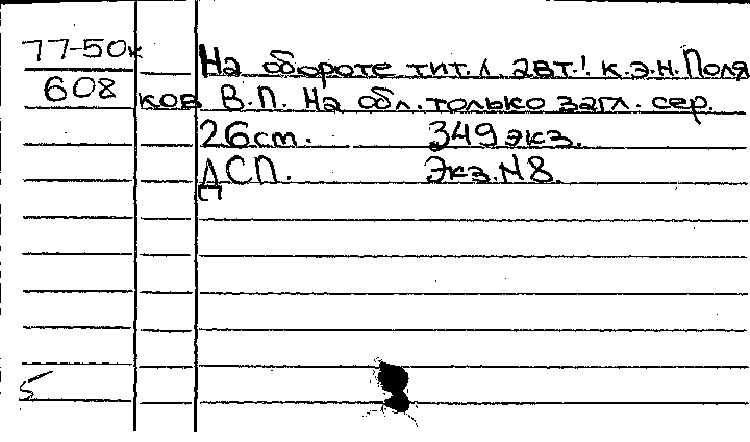 77-50к На обороте тит.л. авт.: к.э.н. Поля
608 ков В.П. На обл. только загл. сер.
26 ст. 349 экз.
ДСП. Экз. №8.
5